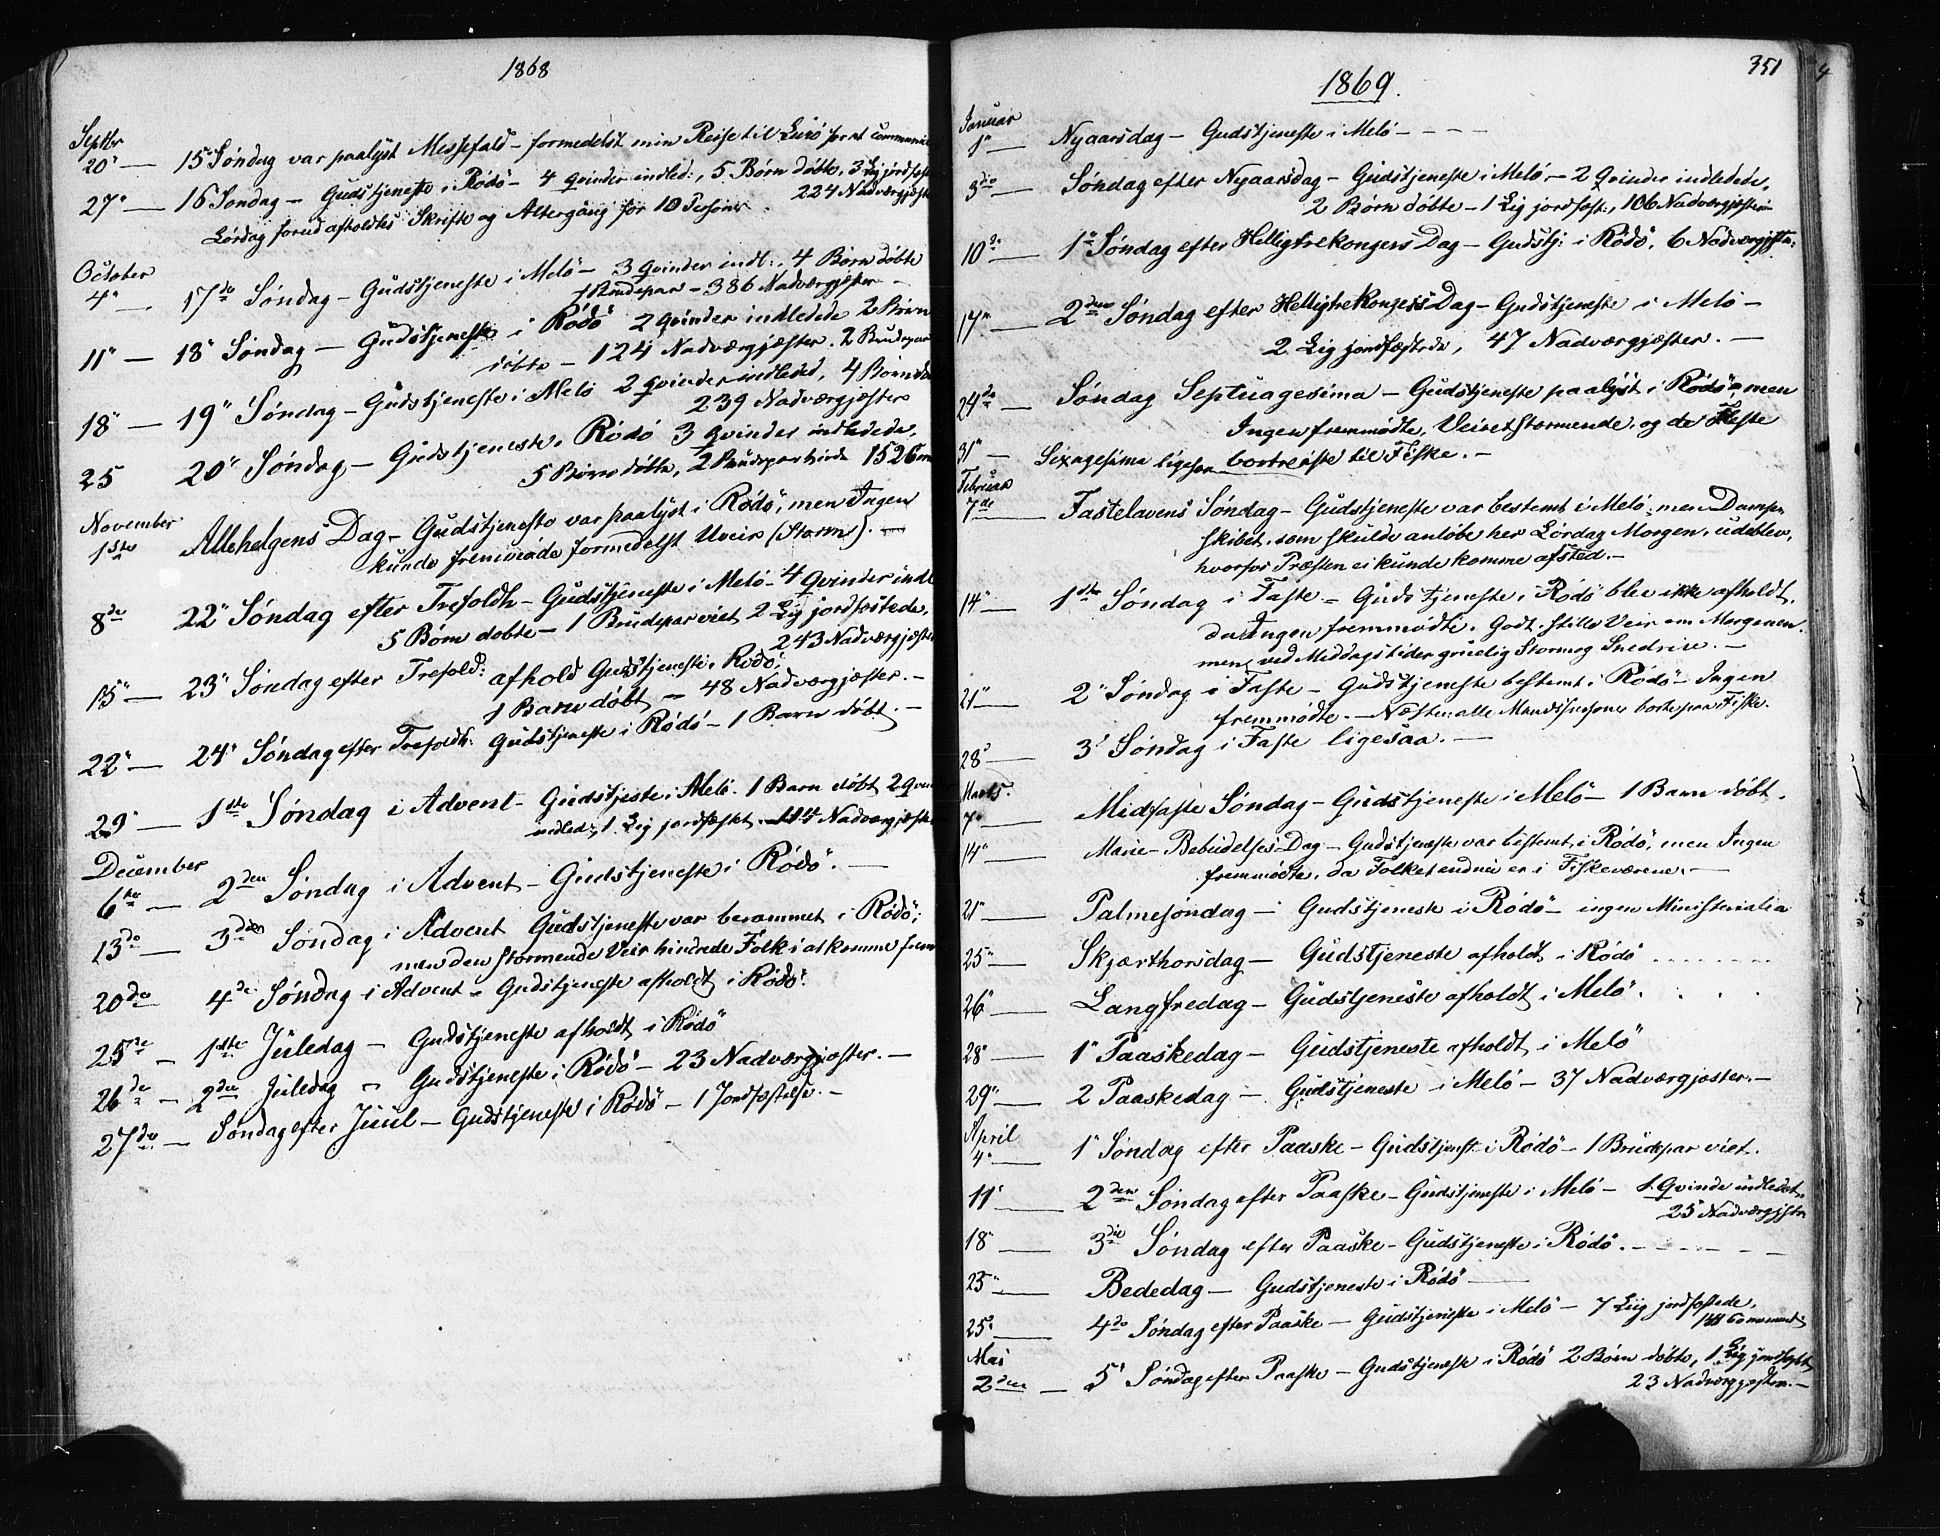 1868
Septbr
20" — 15 Søndag var paalyst Messefald – formedelst min Reise til Lurö for at
27" — 16 Søndag – Gudstjeneste i Rödö – 4 Qvinder indled:, 5 Børn døbte, 3 Lig jordfæst
224 Nadvergjæster
Lørdag forud afholdtes Skrifte og Altergang for 10 Personer.
October
4" — 17de Søndag – Gudstjeneste i Melö – 3 Qvinder indl:, 4 Børn døbte
1 Brudepar – 386 Nadværgjæster –
11" — 18" Søndag – Gudstjeneste i Rödö 2 Qvinder indledede 2 Børn
døbte – 124 Nadværgjæster. 2 Brudepar
18" — 19" Søndag – Gudstjeneste i Melö 2 Qvinder indleded, 4 Børn
239 Nadværgjæster
25 20" Søndag – Gudstjeneste i Rödö 3 Qvinder indledede,
5 Børn døbte, 2 Brudepar
November
1ste Allehelgens Dag – Gudstjeneste var paalyst i Rödö, men Ingen
kunde fremmøde formedelst Uveir (Storm). —
8de 22" Søndag efter Trefoldh – Gudstjeneste i Melö – 4 Qvinder indl
5 Børn døbte – 1 Brudepar viet 2 Lig jordfæstede,
243 Nadværgjæster
15" — 23" Søndag efter Trefold: afhold Gudstjeneste i Rödö;
1 Barn døbt – 48 Nadværgjæster. –
22" — 24" Søndag efter Trefoldh: Gudstjeneste i Rödö – 1 Barn døbt. –
29" — 1ste Søndag i Advent – Gudstjeste i Melö – 1 Barn døbt 2 Qvin
indled:, 1 Lig jordfæstet. 114 Nadværgjæster
December
6te — 2den Søndag i Advent – Gudstjeneste i Rödö. —
13de — 3die Søndag i Advent Gudstjeneste var berammet i Rödö;
men den stormende Veir hindrede Folk i at komme frem
20de 4de Søndag i Advent – Gudstjeneste afholdt i Rödö.
25de — 1ste Juledag – Gudstjeneste afholdt i Rödö
26de — 2den Juledag – Gudstjeneste i Rödö – 23 Nadværgjæster. –
27de — Søndag efter Juul – Gudstjeneste i Rödö – 1 Jordfæstelse. –
351
1869.
Januar
1" — Nyaarsdag – Gudstjeneste i Melö – – – –
3die — Søndag efter Nyaarsdag – Gudstjeneste i Melö, – 2 Qvinder indledede,
2 Børn døbte – 1 Lig jordfæst:, 106 Nadværgjæster –
10de — 1" Søndag efter Helligtrekongers Dag – Gudstj: i Rödö, 6 Nadværgjæster
17" — 2den Søndag efter Helligtrekongers Dag – Gudstjeneste i Melö –
2 Lig jordfæstede, 47 Nadværgjæster. —
24de — Søndag Septuagesima – Gudstjeneste paalyst i Rödö, men
Ingen fremmødte, Veiret stormende, og de Fleste
31" — Sexagesima ligesaa bortreiste til Fiske. –
Februar
7de Fastelavens Søndag – Gudstjeneste var bestemt i Melö; men Damp-
skibet, som skulde anløbe her Lørdag Morgen, udeblev,
hvorfor Præsten ei kunde komme afsted. –
14" — 1ste Søndag i Faste – Gudstjeneste i Rödö blev ikke afholdt,
da Ingen fremmødte. Godt, stille Veir om Morgenen,
men ved Middagstider gruelig Storm og Snedrive. –
21" — 2" Søndag i Faste – Gudstjeneste bestemt i Rödö – Ingen
fremmødte. – Næsten alle Mandspersoner borte paa Fiske.
28" — 3' Søndag i Faste ligesaa. –
Marts.
7" — Midfaste Søndag – Gudstjeneste i Melö – 1 Barn døbt.
14" — Marie-Bebudelses-Dag – Gudstjeneste var bestemt i Rödö, men Ingen
fremmødte, da Folket endnu er i Fiskeværene. –
21" — Palmesøndag – Gudstjeneste i Rödö – ingen Ministerialia
25" — Skjærthorsdag – Gudstjeneste afholdt i Rödö . . . . . . . .
26" — Langfredag – Gudstjeneste afholdt i Melö . . . .
28" — 1" Paaskedag – Gudstjeneste afholdt i Melö
29" — 2 Paaskedag – Gudstjeneste i Melö – 37 Nadværgjæster. –
April
4" — 1" Søndag efter Paaske – Gudstjenest i Rödö – 1 Brudepar viet.
11" — 2den Søndag efter Paaske – Gudstjeneste i Melö – 1 Qvinde indledet,
25 Nadværgjster
18" — 3die Søndag efter Paaske – Gudstjeneste i Rödö. – – – – –
23" — Bededag – Gudstjeneste i Rödö —
25" — 4de Søndag efter Paaske – Gudstjeneste i Melö – 7 Liig jordfæstede,
Mai
2den — 5' Søndag efter Paaske – Gudstjeneste i Rödö 2 Børn døbte, 1 Lig jordfæstet
23 Nadværgjæster. –